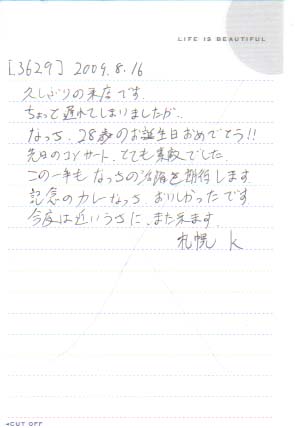 LIFE IS BEAUTIFUL
[3629] 2009.8.16
久しぶりの来店です.
ちょっと遅れてしまいましたが..
なっち. 28歳のお誕生日おめでとう!!
先日のコンサート. とても素敵でした.
この一年も なっちの活躍を期待します
記念のカレーなっち おいしかったです
今度は近いうちに. また来ます.
札幌 K
◂CUT OFF